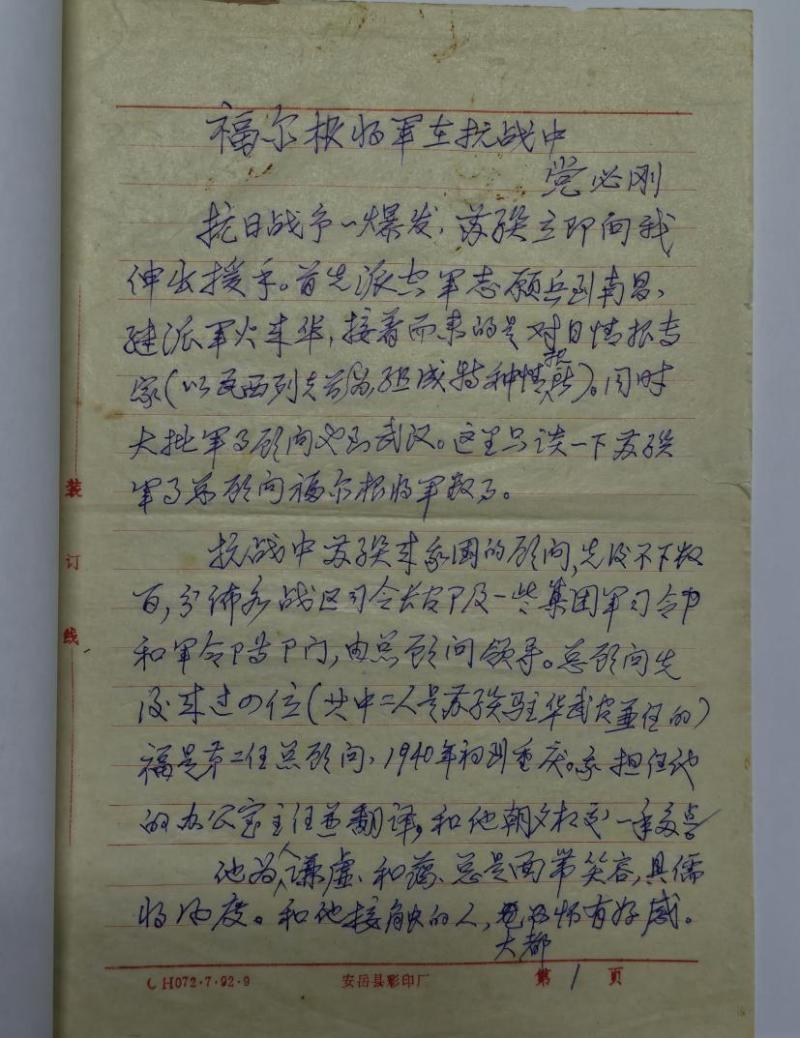 福尔根将军在抗战中
党必刚
抗日战争一爆发,苏联立即向我
伸出援手。首先派空军志愿兵到南昌、
继派军火来华,接着而来的是对日情报专
家(以瓦西列夫为首,组成特种情报所)。同时
大批军事顾问也到武汉。这里只谈一下苏联
军事总顾问福尔根将军数事。
抗战中苏联来我国的顾问,先后不下数
百,分布各战区司令长官部及一些集团军司令部
和军令部等部门,由总顾问领导。总顾问先
后来过四位(其中二人是苏联驻华武官兼任的)
福是第二任总顾问、1940年初到重庆。我担任他
的办公室主任兼翻译,和他朝夕相处一年多
他为人谦虚、和蔼、总是面带笑容,具儒
将风度。和他接触的人,大都怀有好感。
装
订
线
CH072·7·92·9
安岳县彩印厂
第1页